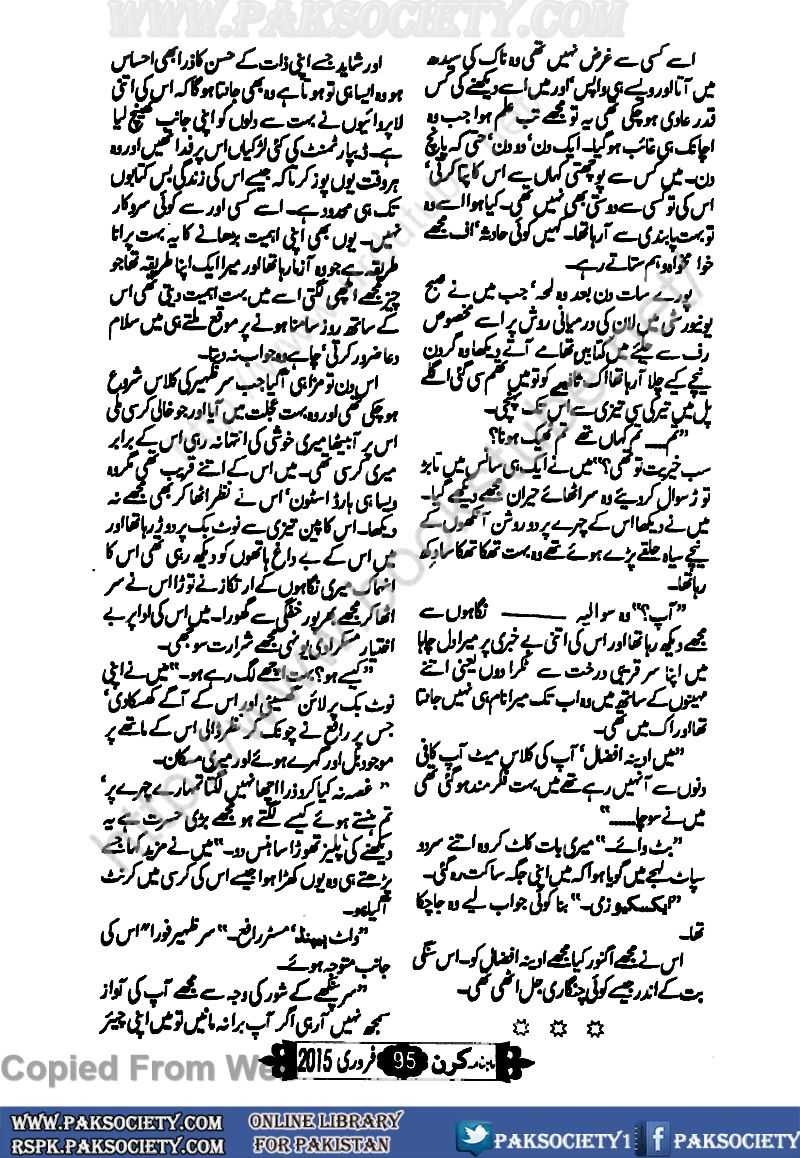 WWW.PAKSOCIETY.COM
اسے کسی سے غرض نہیں تھی وہ ناک کی سیدھ
میں آتا اور ویسے ہی واپس‘ اور میں اسے دیکھنے کی کس
قدر عادی ہو چکی تھی یہ تو مجھے تب علم ہوا جب وہ
اچانک ہی غائب ہو گیا۔ ایک دن‘ دو دن‘ حتیٰ کہ پانچ
دن۔ میں کس سے پوچھتی کہاں سے اس کا پتا کرتی‘
اس کی تو کسی سے دوستی بھی نہیں تھی۔ کیا ہوا اسے وہ
تو بہت پابندی سے آ رہا تھا۔ کہیں کوئی حادثہ‘ اف مجھے
خوامخواہ وہم ستاتے رہے۔
پورے سات دن بعد وہ لمحہ‘ جب میں نے صبح
یونیورسٹی میں لان کی درمیانی روش پر اسے مخصوص
رف سے حلیے میں کتابیں تھامے آتے دیکھا وہ گردن
نیچے کیے چلا آ رہا تھا اک ثانیے کو تو میں تھم سی گئی اگلے
پل میں تیر کی سی تیزی سے اس تک پہنچی۔
”تم۔۔۔ تم کہاں تھے تم ٹھیک ہو نا؟
سب خیریت تو تھی؟“ میں نے ایک ہی سانس میں تابڑ
توڑ سوال کر دیے وہ سر اٹھائے حیران مجھے دیکھے گیا۔
میں نے دیکھا اس کے چہرے پر دو روشن آنکھوں کے
نیچے سیاہ حلقے پڑے ہوئے تھے وہ بہت تھکا تھکا سا دکھ
رہا تھا۔
”آپ؟“ وہ سوالیہ ــــــــ نگاہوں سے
مجھے دیکھ رہا تھا اور اس کی اتنی بے خبری پر میرا دل چاہا
میں اپنا سر قریبی درخت سے ٹکرا دوں یعنی اتنے
مہینوں کے ساتھ میں وہ اب تک میرا نام ہی نہیں جانتا
تھا اور اک میں تھی۔
”میں ادینہ افضال‘ آپ کی کلاس میٹ آپ کافی
دنوں سے آ نہیں رہے تھے میں بہت فکر مند ہو گئی تھی
میں نے سوچا۔۔۔۔۔“
”بٹ وائے۔“ میری بات کاٹ کر وہ اتنے سرد و
سپاٹ لہجے میں گویا ہوا کہ میں اپنی جگہ ساکت رہ گئی۔
”ایکسکیوز می۔“ بنا کوئی جواب لیے وہ جا چکا
تھا۔
اس نے مجھے اگنور کیا مجھے ادینہ افضال کو۔ اس سنگی
بت کے اندر جیسے کوئی چنگاری جل اٹھی تھی۔
☼ ☼ ☼
اور شاید جسے اپنی ذات کے حسن کا ذرا بھی احساس
ہو وہ ایسا ہی تو ہوتا ہے وہ بھی جانتا ہو گا کہ اس کی اتنی
لاپروائیوں نے بہت سے دلوں کو اپنی جانب کھینچ لیا
ہے۔ ڈیپارٹمنٹ کی کئی لڑکیاں اس پر فدا تھیں اور وہ
ہر وقت یوں پوز کرتا کہ جیسے اس کی زندگی بس کتابوں
تک ہی محدود ہے۔ اسے کسی اور سے کوئی سروکار
نہیں۔ یوں بھی اپنی اہمیت بڑھانے کا یہ بہت پرانا
طریقہ ہے جو وہ آزما رہا تھا اور میرا ایک اپنا طریقہ تھا جو
چیز مجھے اچھی لگتی اسے میں بہت اہمیت دیتی تھی اس
کے ساتھ روز سامنا ہونے پر موقع ملتے ہی میں سلام
دعا ضرور کرتی‘ چاہے وہ جواب نہ دیتا۔
اس دن تو مزا ہی آ گیا جب سر ظہیر کی کلاس شروع
ہو چکی تھی اور وہ بہت عجلت میں آیا اور جو خالی کرسی ملی
اس پر آ بیٹھا میری خوشی کی انتہا نہ رہی اس کے برابر
میری کرسی تھی۔ میں اس کے اتنے قریب تھی مگر وہ
ویسا ہی ہارڈ اسٹون‘ اس نے نظر اٹھا کر بھی مجھے نہ
دیکھا۔ اس کا پین تیزی سے نوٹ بک پر دوڑ رہا تھا اور
میں اس کے بے داغ ہاتھوں کو دیکھ رہی تھی اس کا
انہماک میری نگاہوں کے ارتکاز نے توڑا اس نے سر
اٹھا کر مجھے بھرپور خفگی سے گھورا۔ میں اس کی ادا پر بے
اختیار مسکرا دی یونہی مجھے شرارت سوجھی۔
”کیسے ہو؟ بہت اچھے لگ رہے ہو۔“ میں نے اپنی
نوٹ بک پر لائن گھسیٹی اور اس کے آگے کھسکا دی‘
جس پر رافع نے چونک کر نظر ڈالی اس کے ماتھے پر
موجود بل اور گہرے ہوئے اور میری مسکان۔
”غصہ نہ کیا کرو ذرا اچھا نہیں لگتا تمہارے چہرے پر‘
تم ہنستے ہوئے کیسے لگتے ہو مجھے بڑی حسرت ہے یہ
دیکھنے کی‘ پلیز تھوڑا سا ہنس دو۔“ میں نے مزید لکھا جسے
پڑھتے ہی وہ یوں کھڑا ہوا جیسے اس کی کرسی میں کرنٹ
آ گیا ہو۔
”واٹ ہیپنڈ‘ مسٹر رافع۔“ سر ظہیر فوراً اس کی
جانب متوجہ ہوئے۔
”سر پنکھے کے شور کی وجہ سے مجھے آپ کی آواز
سمجھ نہیں آ رہی اگر آپ برا نہ مانیں تو میں اپنی چیئر
ماہنامہ کرن 95 فروری 2015
Copied From We
WWW.PAKSOCIETY.COM
RSPK.PAKSOCIETY.COM
ONLINE LIBRARY
FOR PAKISTAN
PAKSOCIETY1
PAKSOCIETY